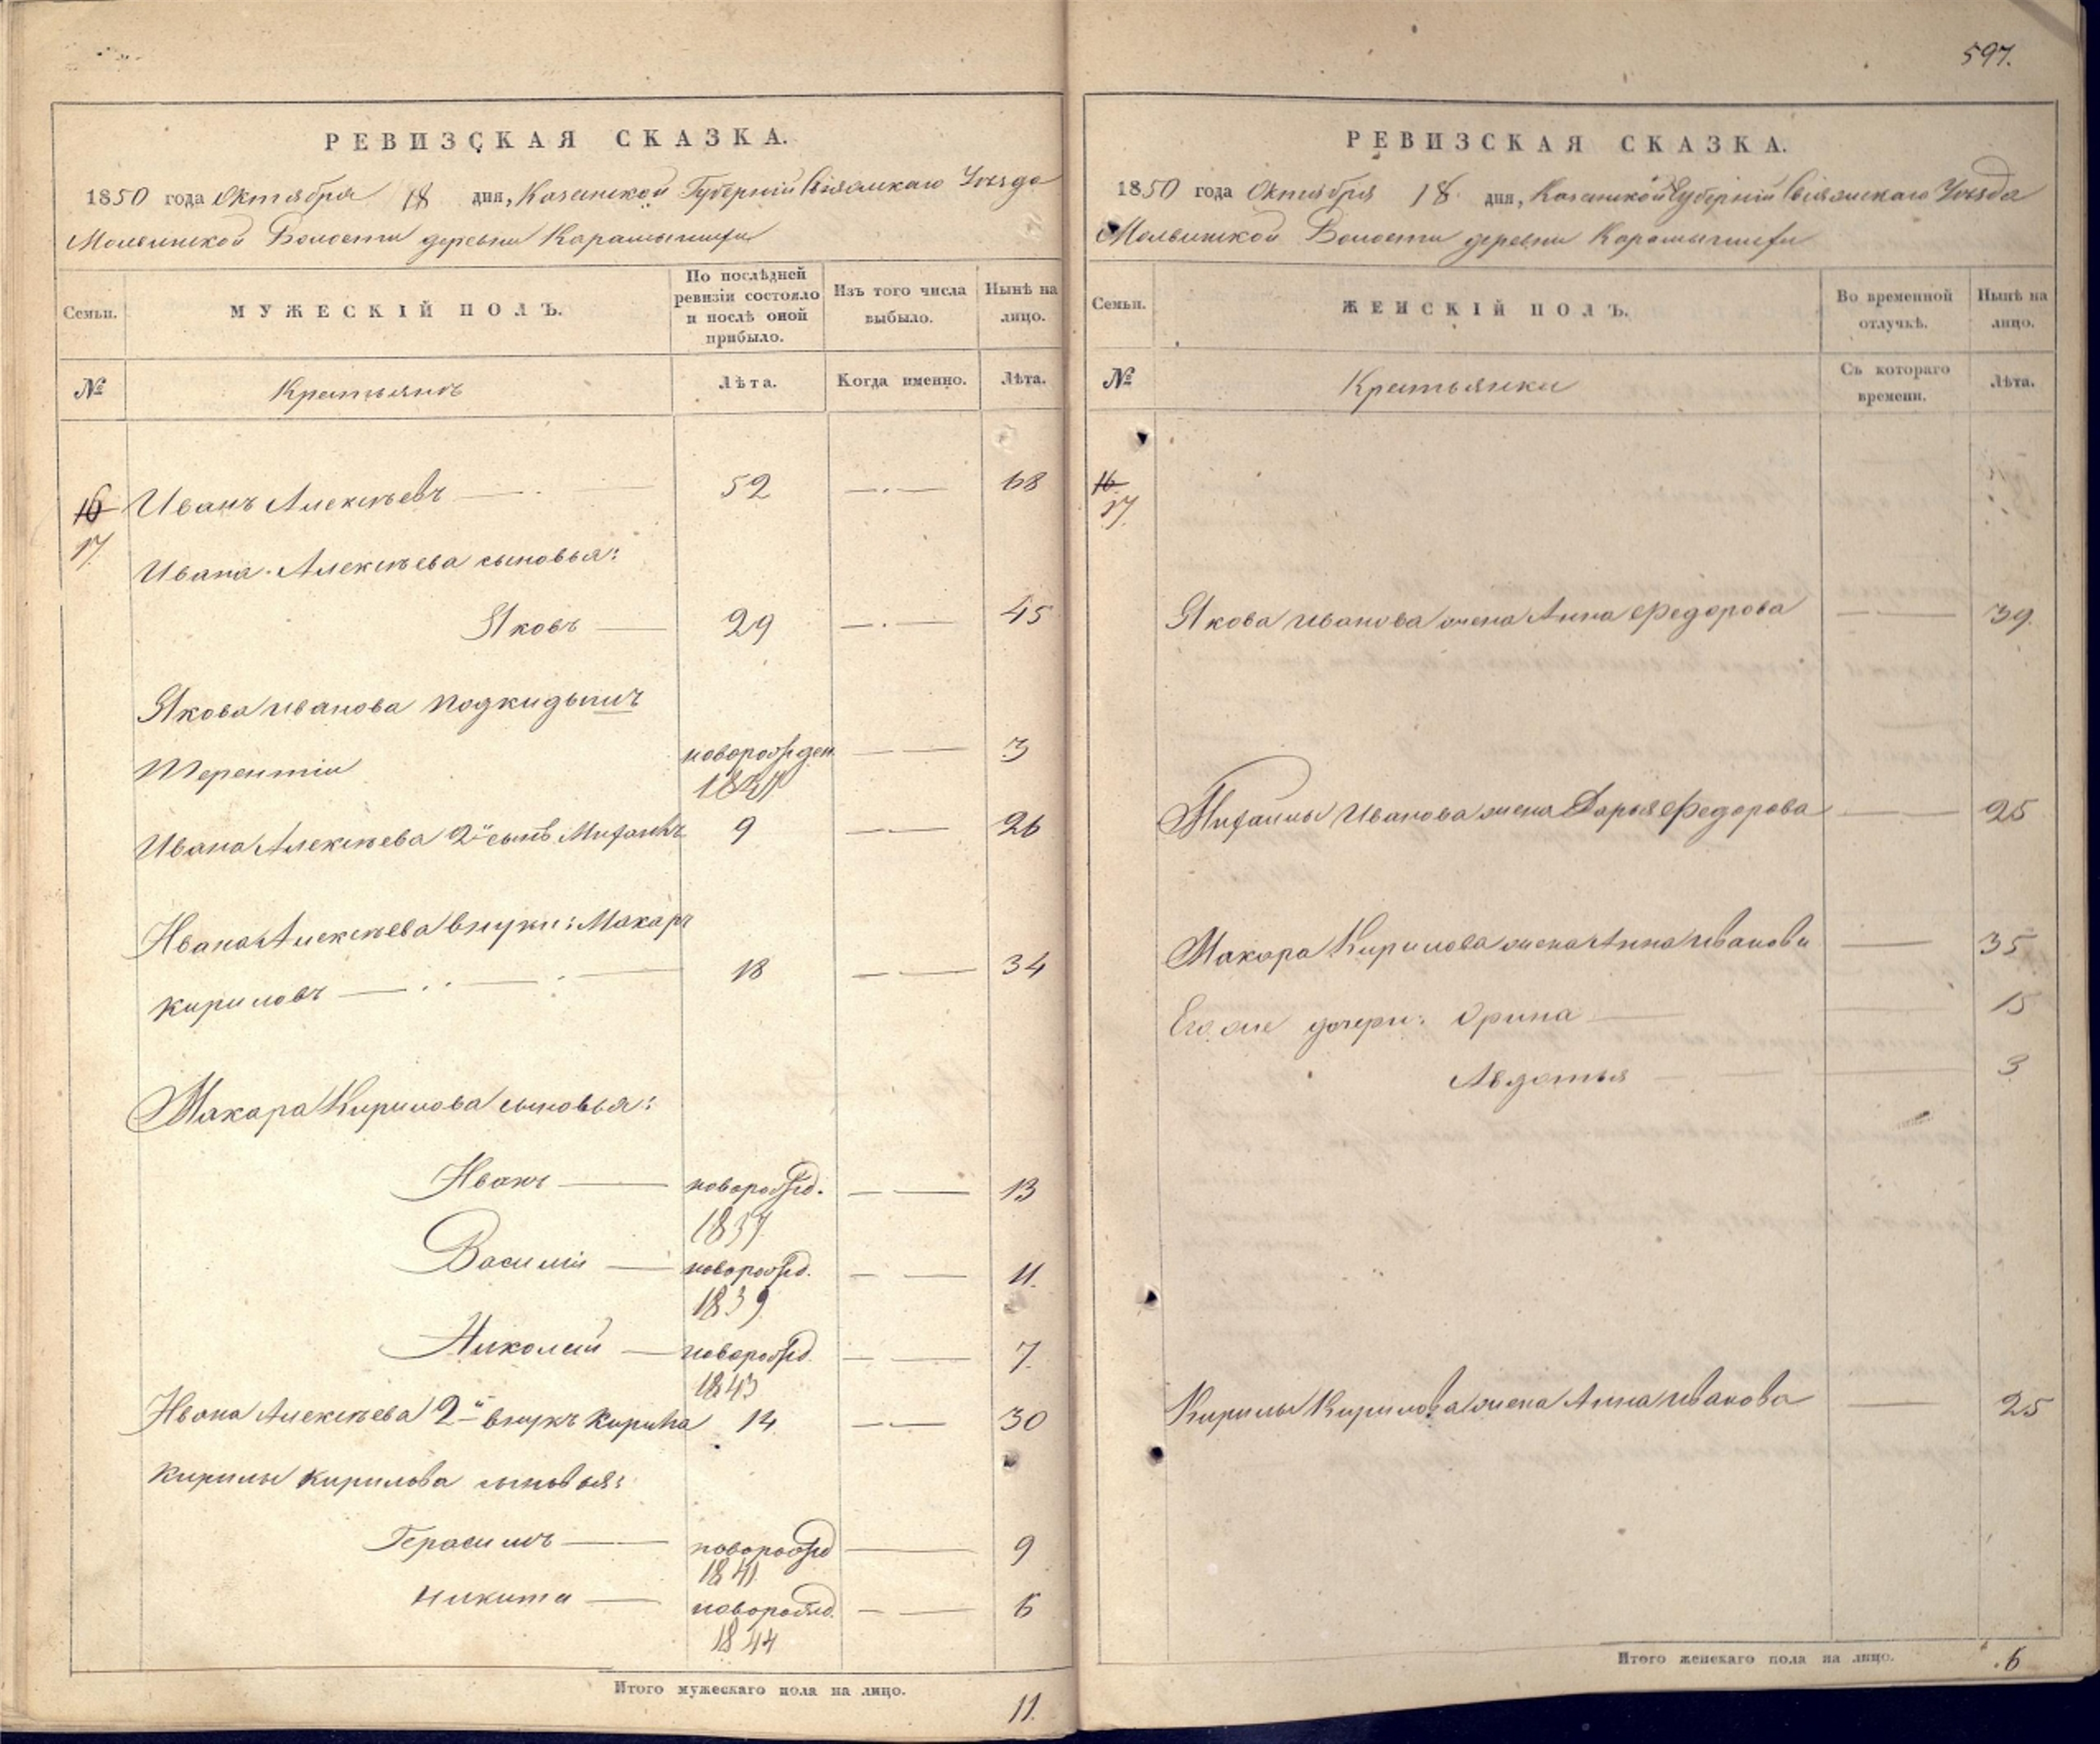 597.
РЕВИЗСКАЯ СКАЗКА.
1850 года Октября 18 дня, Казанской Губерніи Свіяжскаго Уѣзда
Молвинской Волости деревни Карамышихи
Семьи.
МУЖЕСКІЙ ПОЛЪ.
По послѣдней ревизіи состояло и послѣ оной прибыло.
Изъ того числа выбыло.
Нынѣ на лицо.
№
Крестьянъ
Лѣта.
Когда именно.
Лѣта.
16 Иванъ Алексѣевъ 52 68
17.
Ивана Алексѣева сыновья:
Яковъ 29 45
Якова Иванова подкидышъ
Терентіи новорожден. 3
Ивана Алексѣева 2й сынъ 9 26
Ивана Алексѣева внуки: Макаръ
Кириловъ 18 34
Макара Кирилова сыновья:
Иванъ новорожд. 13
1837
Василіи новорожд. 11.
1839
Николай новорожд. 7.
1843
Ивана Алексѣева 2й внукъ Кирила 14 30
Кирилы Кирилова сыновья:
Герасимъ новорожд 9
1841
Никита новорожд. 6
1844
Итого мужескаго пола на лицо. 11.
РЕВИЗСКАЯ СКАЗКА.
1850 года Октября 18 дня, Казанской Губерніи Свіяжскаго Уѣзда
Молвинской Волости деревни Карамышихи
Семьи.
ЖЕНСКІЙ ПОЛЪ.
Во временной отлучкѣ.
Нынѣ на лицо.
№
Крестьянки
Съ котораго времени.
Лѣта.
16.
17.
Якова Иванова жена Анна Федорова 39.
Иванова жена Дарья Федорова 25
Макара Кирилова жена Анна Иванова 35
Его же дочери: Орина 15
Авдотья 3
Кирилы Кирилова жена Анна Иванова 25
Итого женскаго пола на лицо. 6